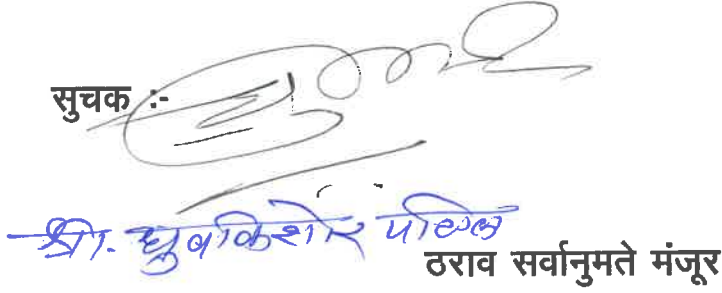 सुचक :-
श्री. ध्रुवकिशोर पाटील
ठराव सर्वानुमते मंजूर